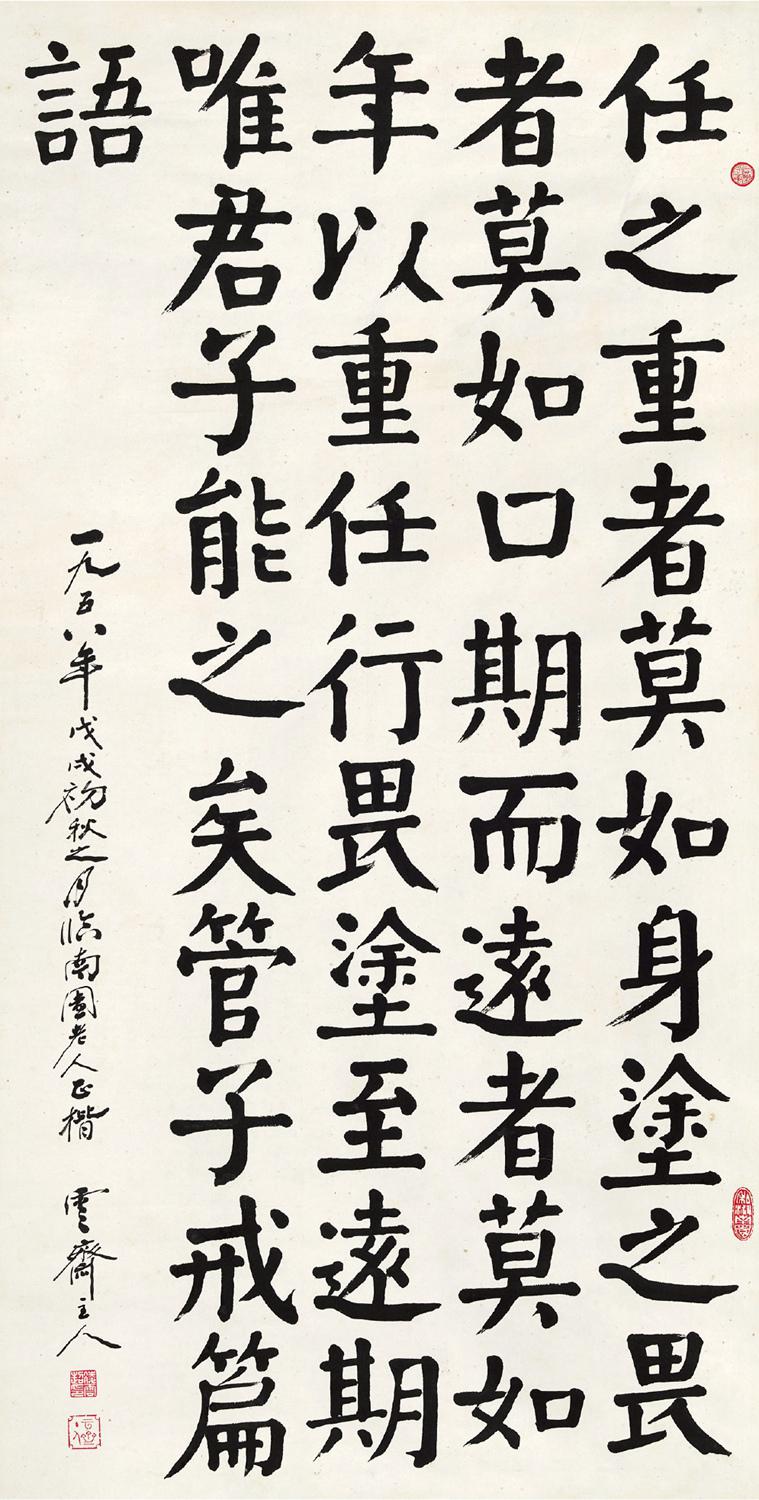 任之重者莫如身塗之畏
者莫如口期而遠者莫如
年以重任行畏塗至遠期
唯君子能之矣管子戒篇
語
一九五八年戊戌初秋之月臨南園老人正楷 雲齋主人